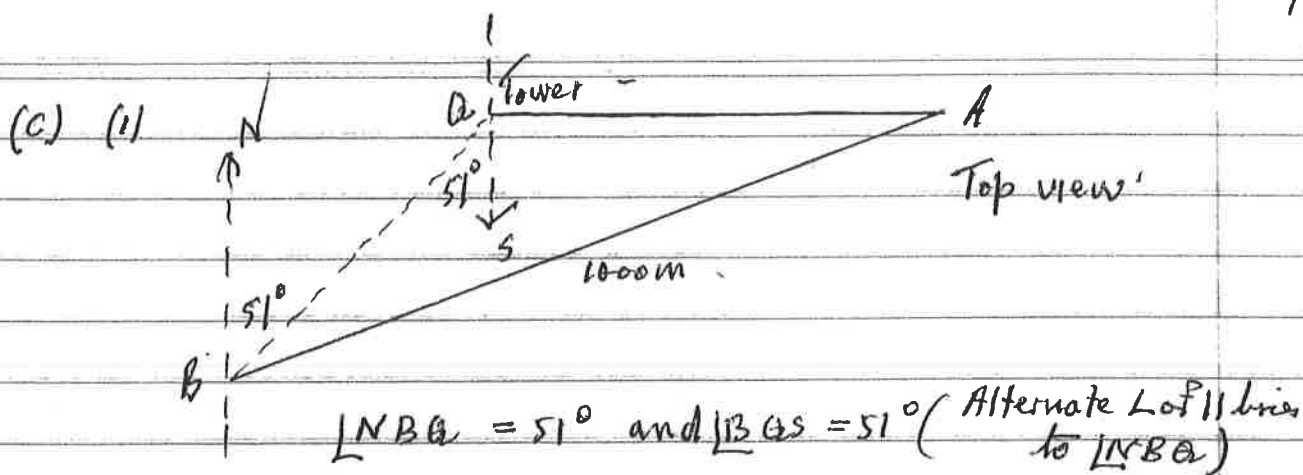 (C) (1) N Q Tower A
51° Top view
S
1000m
51°
B
∟NBQ = 51° and ∟BQS = 51° (Alternate ∟ of || lines
to ∟NBQ)